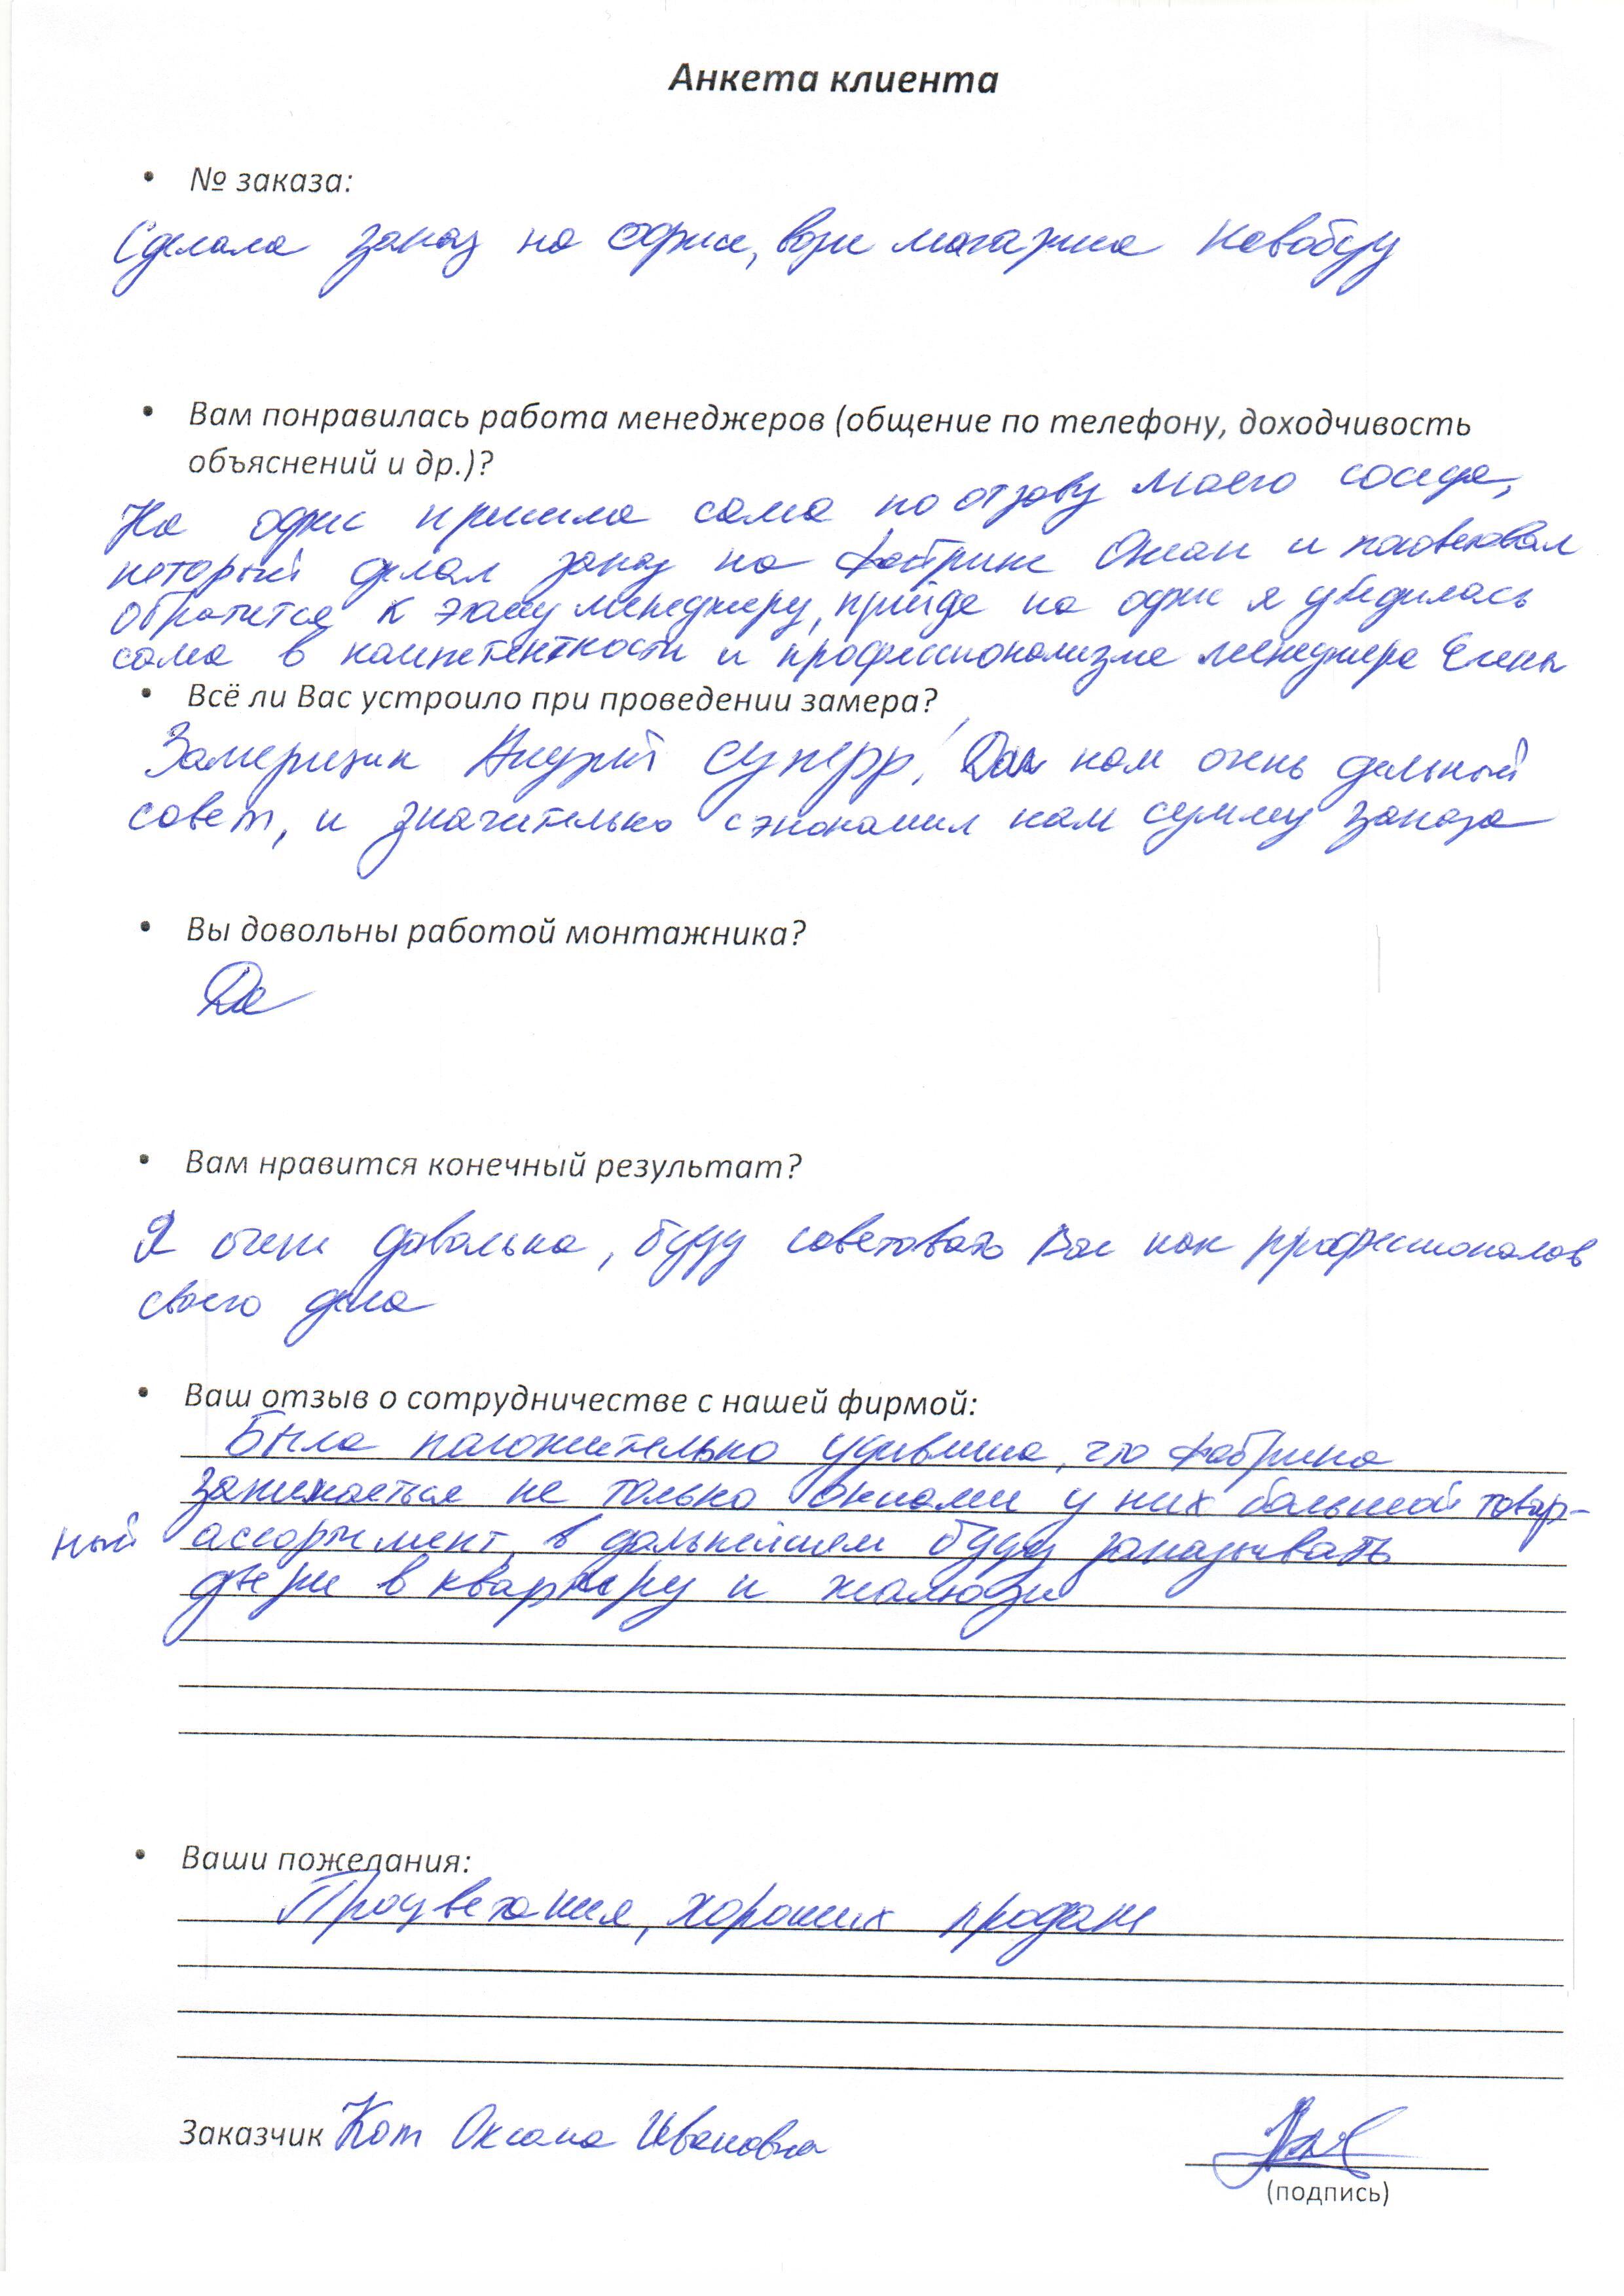 Анкета клиента
• № заказа:
Сделала заказ на офисе, магазина Новобуд
• Вам понравилась работа менеджеров (общение по телефону, доходчивость
объяснений и др.)?
На офис пришла сама по отзову моего соседа,
который делал заказ на фабрике Окон и посоветовал
обратится к этому менеджеру, прийдя на офис я убедилась
сама в компетентности и профессионализме менеджера Елены
• Всё ли Вас устроило при проведении замера?
Замерщик Андрей суперр! Дал нам очень дельный
совет, и значительно сэкономил нам сумму заказа
• Вы довольны работой монтажника?
Да
• Вам нравится конечный результат?
Я очень довольна, буду советовать Вас как профессионалов
своего дела
• Ваш отзыв о сотрудничестве с нашей фирмой:
Была положительно удивлена, что фабрика
занимаеться не только окнами у них большой товар-
ный ассортимент, в дальнейшем буду заказывать
двери в квартиру и жалюзи
• Ваши пожелания:
Процветания, хороших продаж
Заказчик Кот Оксана Ивановна
(подпись)